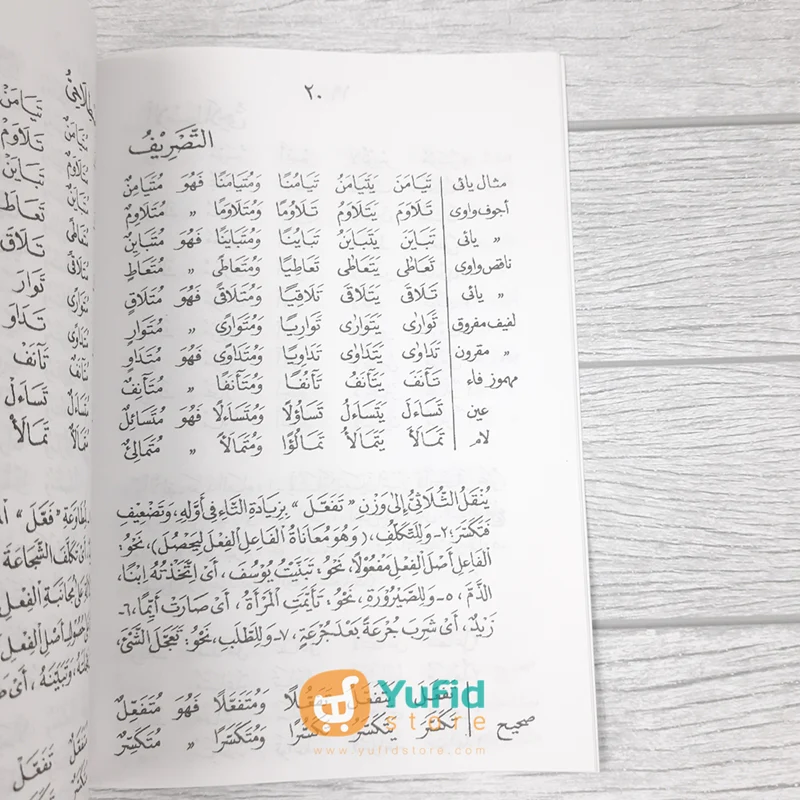 ٢٠
التَّصْرِيْفُ
مثال يائى تَيَامَنَ يَتَيَامَنُ تَيَامُنًا وَمُتَيَامَنًا فَهُوَ مُتَيَامِنٌ
أجوف واوى تَلَاوَمَ يَتَلَاوَمُ تَلَاوُمًا وَمُتَلَاوَمًا " مُتَلَاوِمٌ
" يائى تَبَايَنَ يَتَبَايَنُ تَبَايُنًا وَمُتَبَايَنًا فَهُوَ مُتَبَايِنٌ
ناقص واوى تَعَاطَى يَتَعَاطَى تَعَاطِيًا وَمُتَعَاطًى " مُتَعَاطٍ
" يائى تَلَاقَى يَتَلَاقَى تَلَاقِيًا وَمُتَلَاقًى فَهُوَ مُتَلَاقٍ
لفيف مفروق تَوَارَى يَتَوَارَى تَوَارِيًا وَمُتَوَارًى " مُتَوَارٍ
" مقرون تَدَاوَى يَتَدَاوَى تَدَاوِيًا وَمُتَدَاوًى فَهُوَ مُتَدَاوٍ
مهموز فاء تَآنَفَ يَتَآنَفُ تَآنُفًا وَمُتَآنَفًا " مُتَآنِفٌ
عين تَسَاءَلَ يَتَسَاءَلُ تَسَاؤُلًا وَمُتَسَاءَلًا فَهُوَ مُتَسَائِلٌ
لام تَمَالَأَ يَتَمَالَأُ تَمَالُؤًا وَمُتَمَالَأً " مُتَمَالِئٌ
يُنْقَلُ الثُّلَاثِىُّ إِلَى وَزْنِ " تَفَعَّلَ " بِزِيَادَةِ التَّاءِ فِى أَوَّلِهِ، وَتَضْعِيْفِ
فَتَكَسَّرَ: ٢- وَلِلتَّكَلُّفِ، (وَهُوَ مُعَانَاةُ الْفَاعِلِ الْفِعْلَ لِيَحْصُلَ)، نَحْوُ:
الْفَاعِلِ أَصْلَ الْفِعْلِ مَفْعُوْلًا، نَحْوُ: تَبَنَّيْتُ يُوْسُفَ، أَىْ اتَّخَذْتُهُ اِبْنًا،
الذَّمَّ، ٥- وَلِلصَّيْرُوْرَةِ، نَحْوُ: تَأَيَّمَتِ الْمَرْأَةُ، أَىْ صَارَتْ أَيِّمًا، ٦-
زَيْدٌ، أَىْ شَرِبَ جُرْعَةً بَعْدَ جُرْعَةٍ، ٧- وَلِلطَّلَبِ، نَحْوُ: تَعَجَّلَ الشَّىْءَ،
تَفَعَّلَ يَتَفَعَّلُ تَفَعُّلًا وَمُتَفَعَّلًا فَهُوَ مُتَفَعِّلٌ
صحيح تَكَسَّرَ يَتَكَسَّرُ تَكَسُّرًا وَمُتَكَسَّرًا " مُتَكَسِّرٌ
YuFid
store
www.yufidstore.com
تَلَاوَمْ
تَبَايَنْ
تَعَاطَ
تَلَاقَ
تَوَارَ
تَدَاوَ
تَآنَفْ
تَسَاءَلْ
تَمَالَأْ